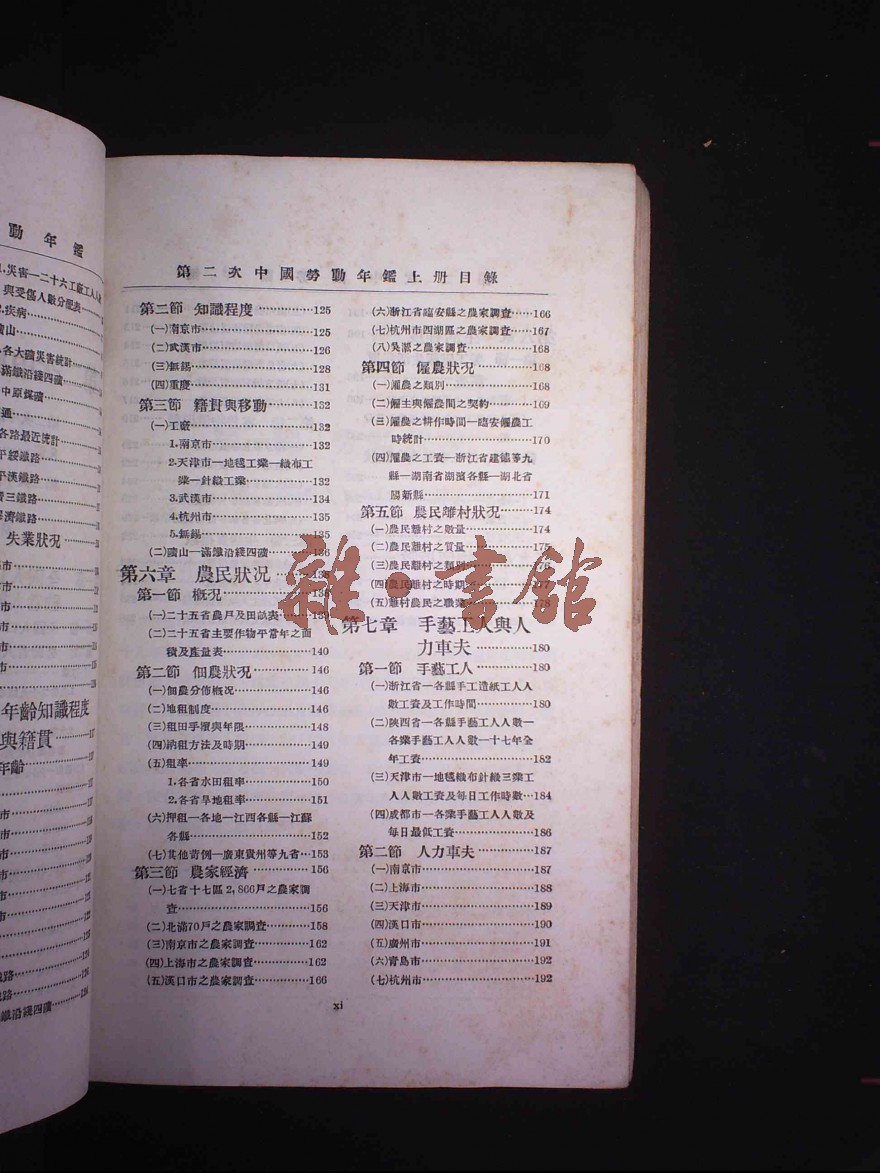 動年鑑
1.災害—二十六工廠工人人數
與受傷人數分配表
2.疾病
礦山
各大礦災害統計
滿鐵沿綫四礦
中原煤礦
各路最近統計
平綏鐵路
平漢鐵路
失業狀況
年齡知識程度
與籍貫
年齡
鐵沿綫四礦
第二次中國勞動年鑑上册目錄
第二節 知識程度 125
(一)南京市 125
(二)武漢市 126
(三)無錫 128
(四)重慶 131
第三節 籍貫與移動 132
(一)工廠 132
1.南京市 132
2.天津市—地毯工業—織布工
業—針織工業 132
3.武漢市 134
4.杭州市 135
5.無錫 135
(二)礦山—滿鐵沿綫四礦 136
第六章 農民狀况 138
第一節 概况 138
(一)二十五省農戶及田畝表 139
(二)二十五省主要作物平當年之面
積及產量表 140
第二節 佃農狀况 146
(一)佃農分佈概况 146
(二)地租制度 146
(三)租田手續與年限 148
(四)納租方法及時期 149
(五)租率 149
1.各省水田租率 150
2.各省旱地租率 151
(六)押租—各地—江西各縣—江蘇
各縣 152
(七)其他苛例—廣東貴州等九省 153
第三節 農家經濟 156
(一)七省十七區2,866戶之農家調
查 156
(二)北滿70戶之農家調查 158
(三)南京市之農家調查 162
(四)上海市之農家調查 162
(五)漢口市之農家調查 166
(六)浙江省臨安縣之農家調查 166
(七)杭州市西湖區之農家調查 167
(八)吳淞之農家調查 168
第四節 僱農狀况 168
(一)僱農之類別 168
(二)僱主與僱農間之契約 169
(三)僱農之耕作時間—臨安僱農工
時統計 170
(四)僱農之工資—浙江省建德等九
縣—湖南省湖濱各縣—湖北省
陽新縣 171
第五節 農民離村狀况 174
(一)農民離村之數量 174
(二)農民離村之質量 175
(三)農民離村之類別 176
(四)農民離村之時期 177
(五)離村農民之職業 178
第七章 手藝工人與人
力車夫 180
第一節 手藝工人 180
(一)浙江省—各縣手工造紙工人人
數工資及工作時間 180
(二)陝西省—各縣手藝工人人數—
各業手藝工人人數—十七年全
年工資 182
(三)天津市—地毯織布針織三業工
人人數工資及每日工作時數 184
(四)成都市—各業手藝工人人數及
每日最低工資 186
第二節 人力車夫 187
(一)南京市 187
(二)上海市 188
(三)天津市 189
(四)漢口市 190
(五)廣州市 191
(六)青島市 192
(七)杭州市 192
xi
雜·書館